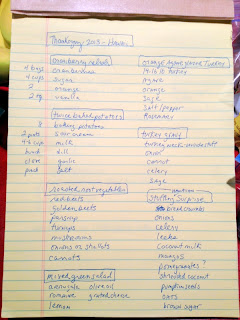 Thanksgiving 2013 - Hawaii
cranberry relish
4 bags cranberries
4 cups sugar
2 orange
2 tsp vanilla
twice baked potatoes
8 baking potatoes
2 pints sour cream
milk
bunch dill
garlic
salt
roasted root vegetables
red beets
golden beets
parsnip
turnips
mushrooms
onions or shallots
carrots
mixed green salad
arugula olive oil
romaine grated cheese
lemon
orange agave glazed Turkey
14-16 lb turkey
agave
orange
sage
salt/pepper
Rosemary
turkey stock
turkey neck
onion
carrot
celery
sage
Stuffing Surprise
bread crumbs
onions
celery
leeks
coconut milk
mangos
pomegranates?
shredded coconut
pumpkin seeds
oats
brown sugar